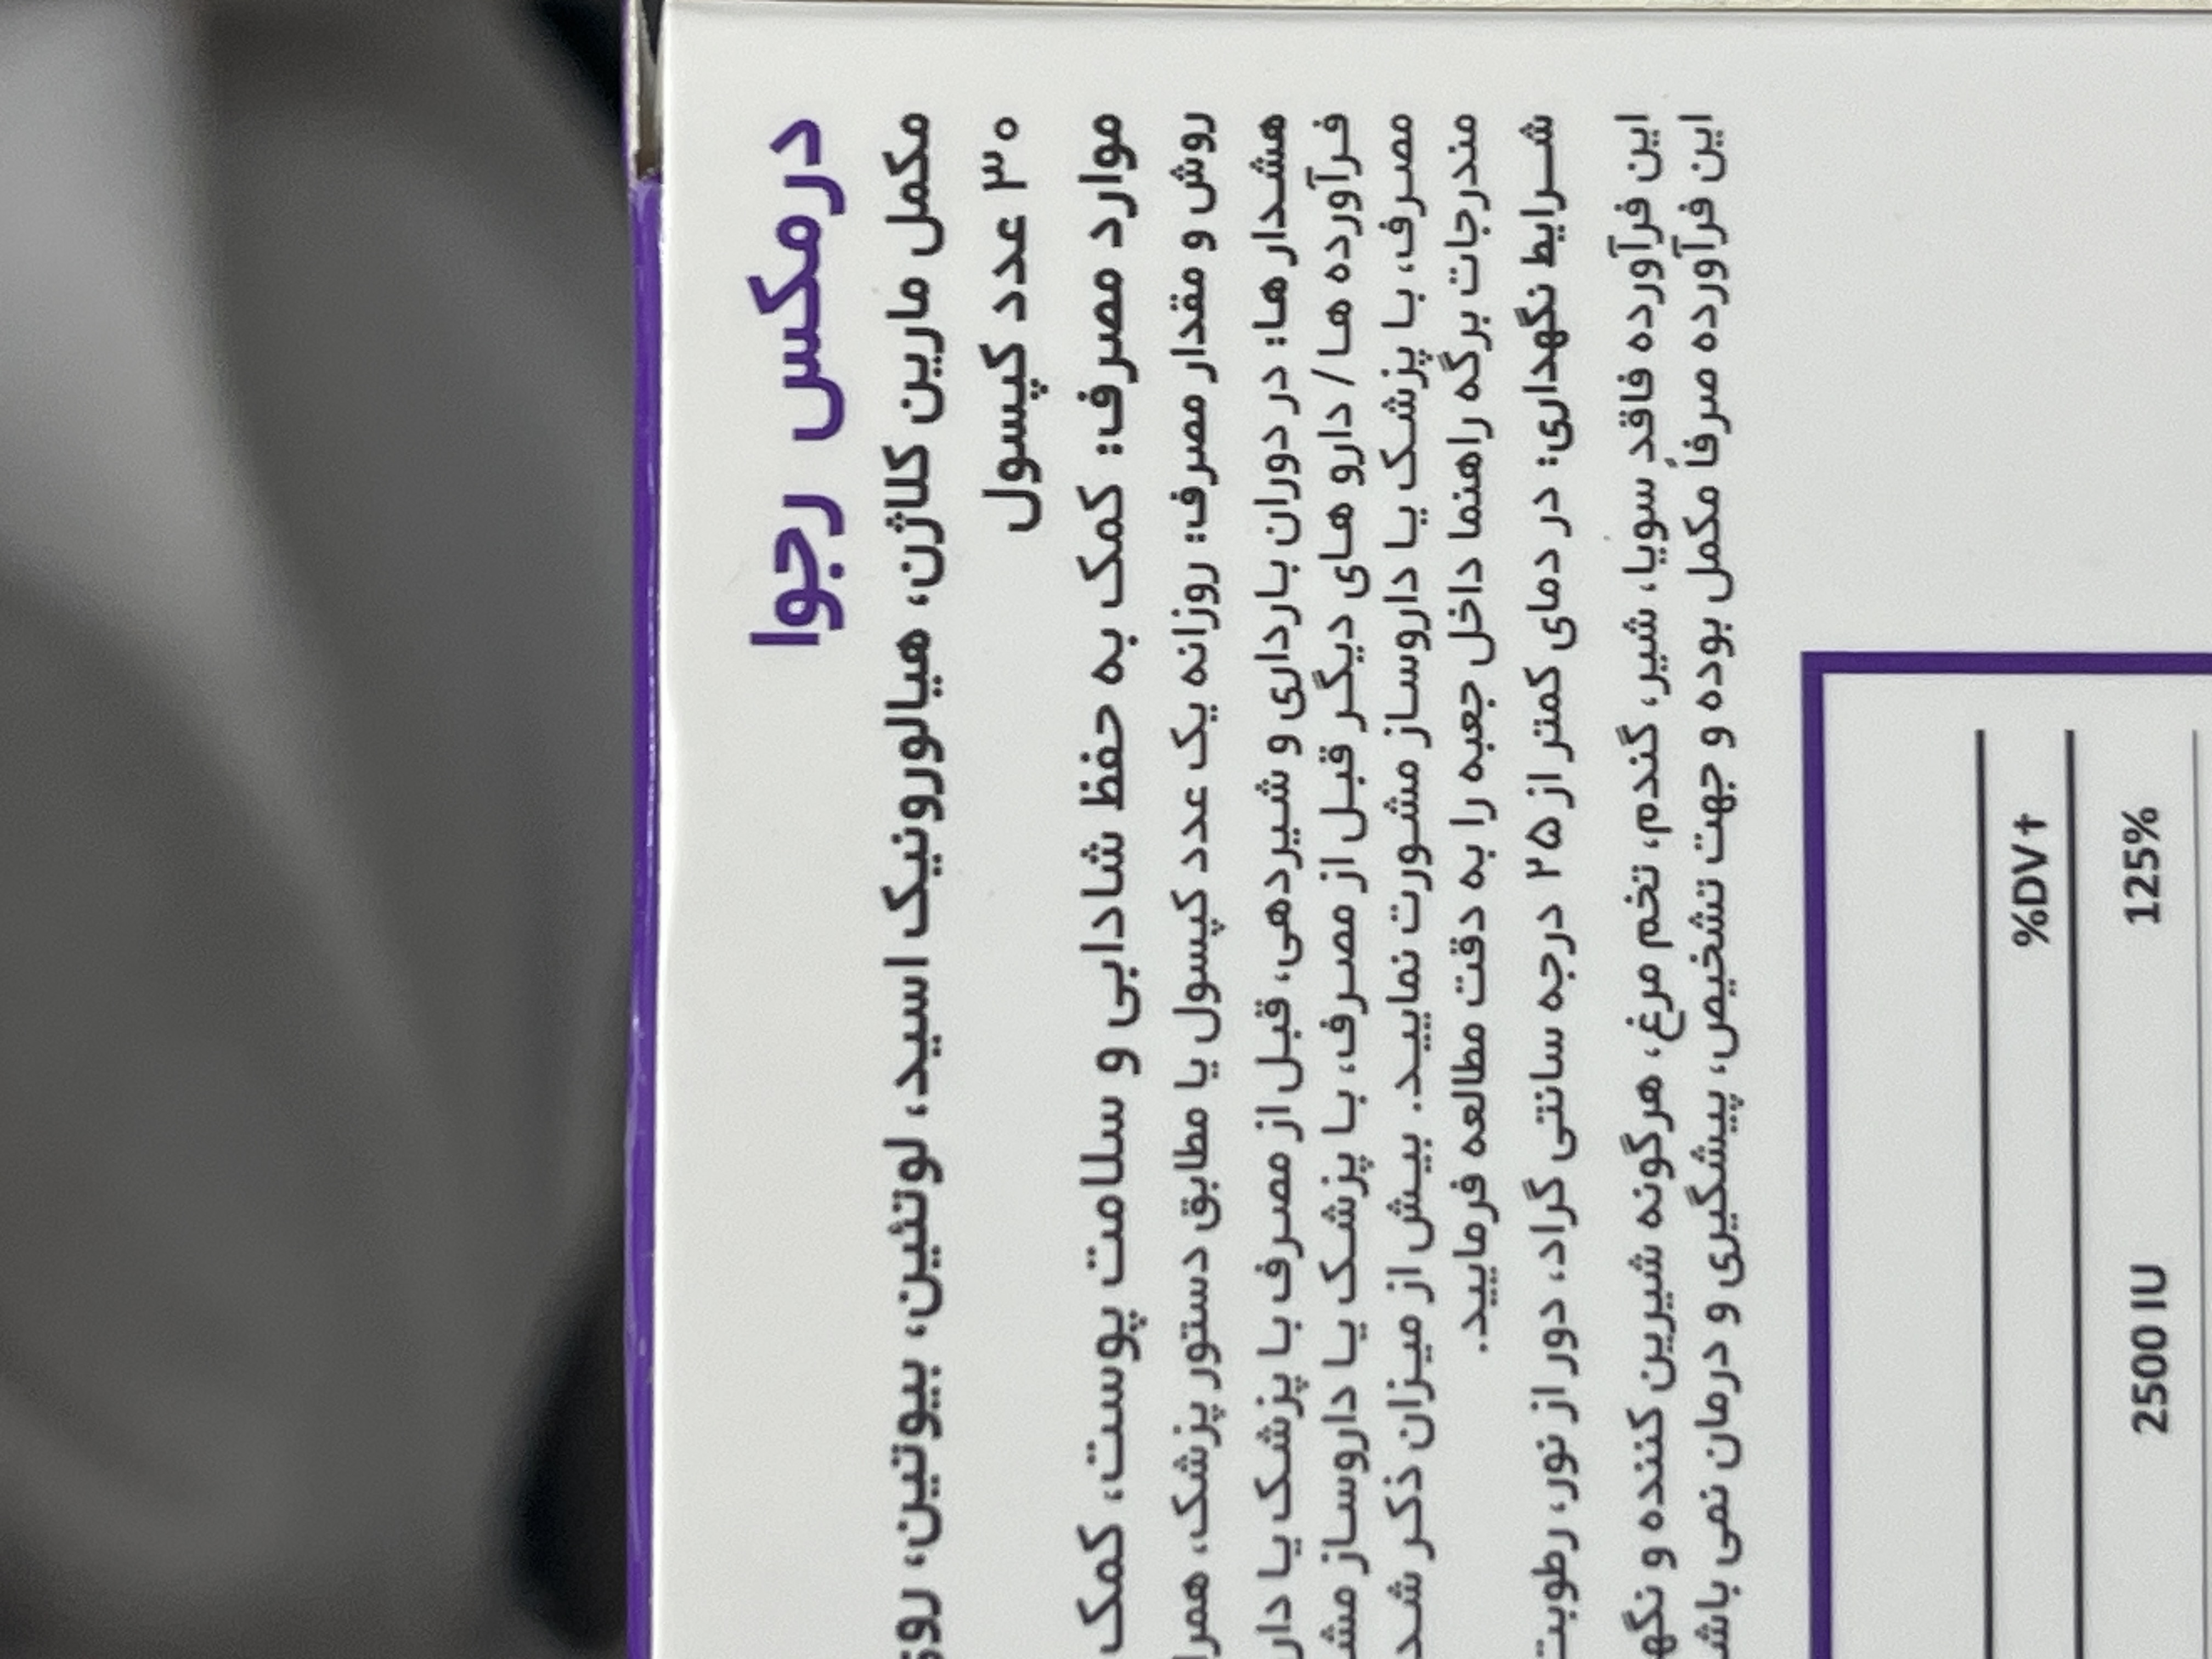 درمکس رجوا
مکمل مارین کلاژن، هیالورونیک اسید، لوتئین، بیوتین، روی
۳۰ عدد کپسول
موارد مصرف: کمک به حفظ شادابی و سلامت پوست، کمک
روش و مقدار مصرف: روزانه یک عدد کپسول یا مطابق دستور پزشک، همرا
هشدار ها: در دوران بارداری و شیردهی، قبل از مصرف با پزشک یا دار
فرآورده ها/ دارو های دیگر قبل از مصرف، با پزشک یا داروساز مش
مصرف، با پزشک یا داروساز مشورت نمایید. بیش از میزان ذکر شد
مندرجات برگه راهنما داخل جعبه را به دقت مطالعه فرمایید.
شرایط نگهداری: در دمای کمتر از ۲۵ درجه سانتی گراد، دور از نور، رطوبت
این فرآورده فاقد سویا، شیر، گندم، تخم مرغ، هرگونه شیرین کننده و نگه
این فرآورده صرفاً مکمل بوده و جهت تشخیص، پیشگیری و درمان نمی باش
%DV†
2500 IU 125%